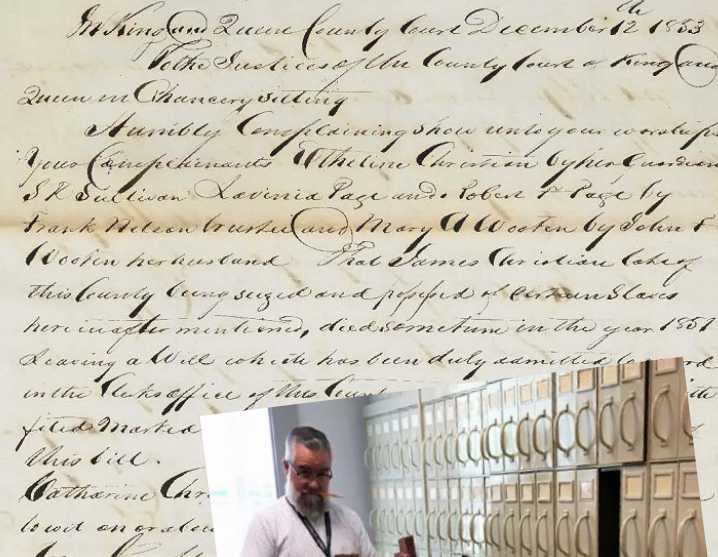 In King and Queen County Court December 12th 1853
To the Justices of the County Court of King and
Queen in Chancery sitting
Humbly Complaining show unto your worships
Your Complainants Etheline Christian by her Guardian
S R Sullivan Lavinia Page and Robert F Page by
Frank Nelson trustee and Mary A Wooten by John F
Wooten her husband That James Christian late of
this County being seized and possessed of certain Slaves
herein after mentioned, died sometime in the year 1851
Leaving a Will which has been duly admitted to
in the Clerks office of this County
filed Marked
this bill.
Catharine Chr
to wit on or about